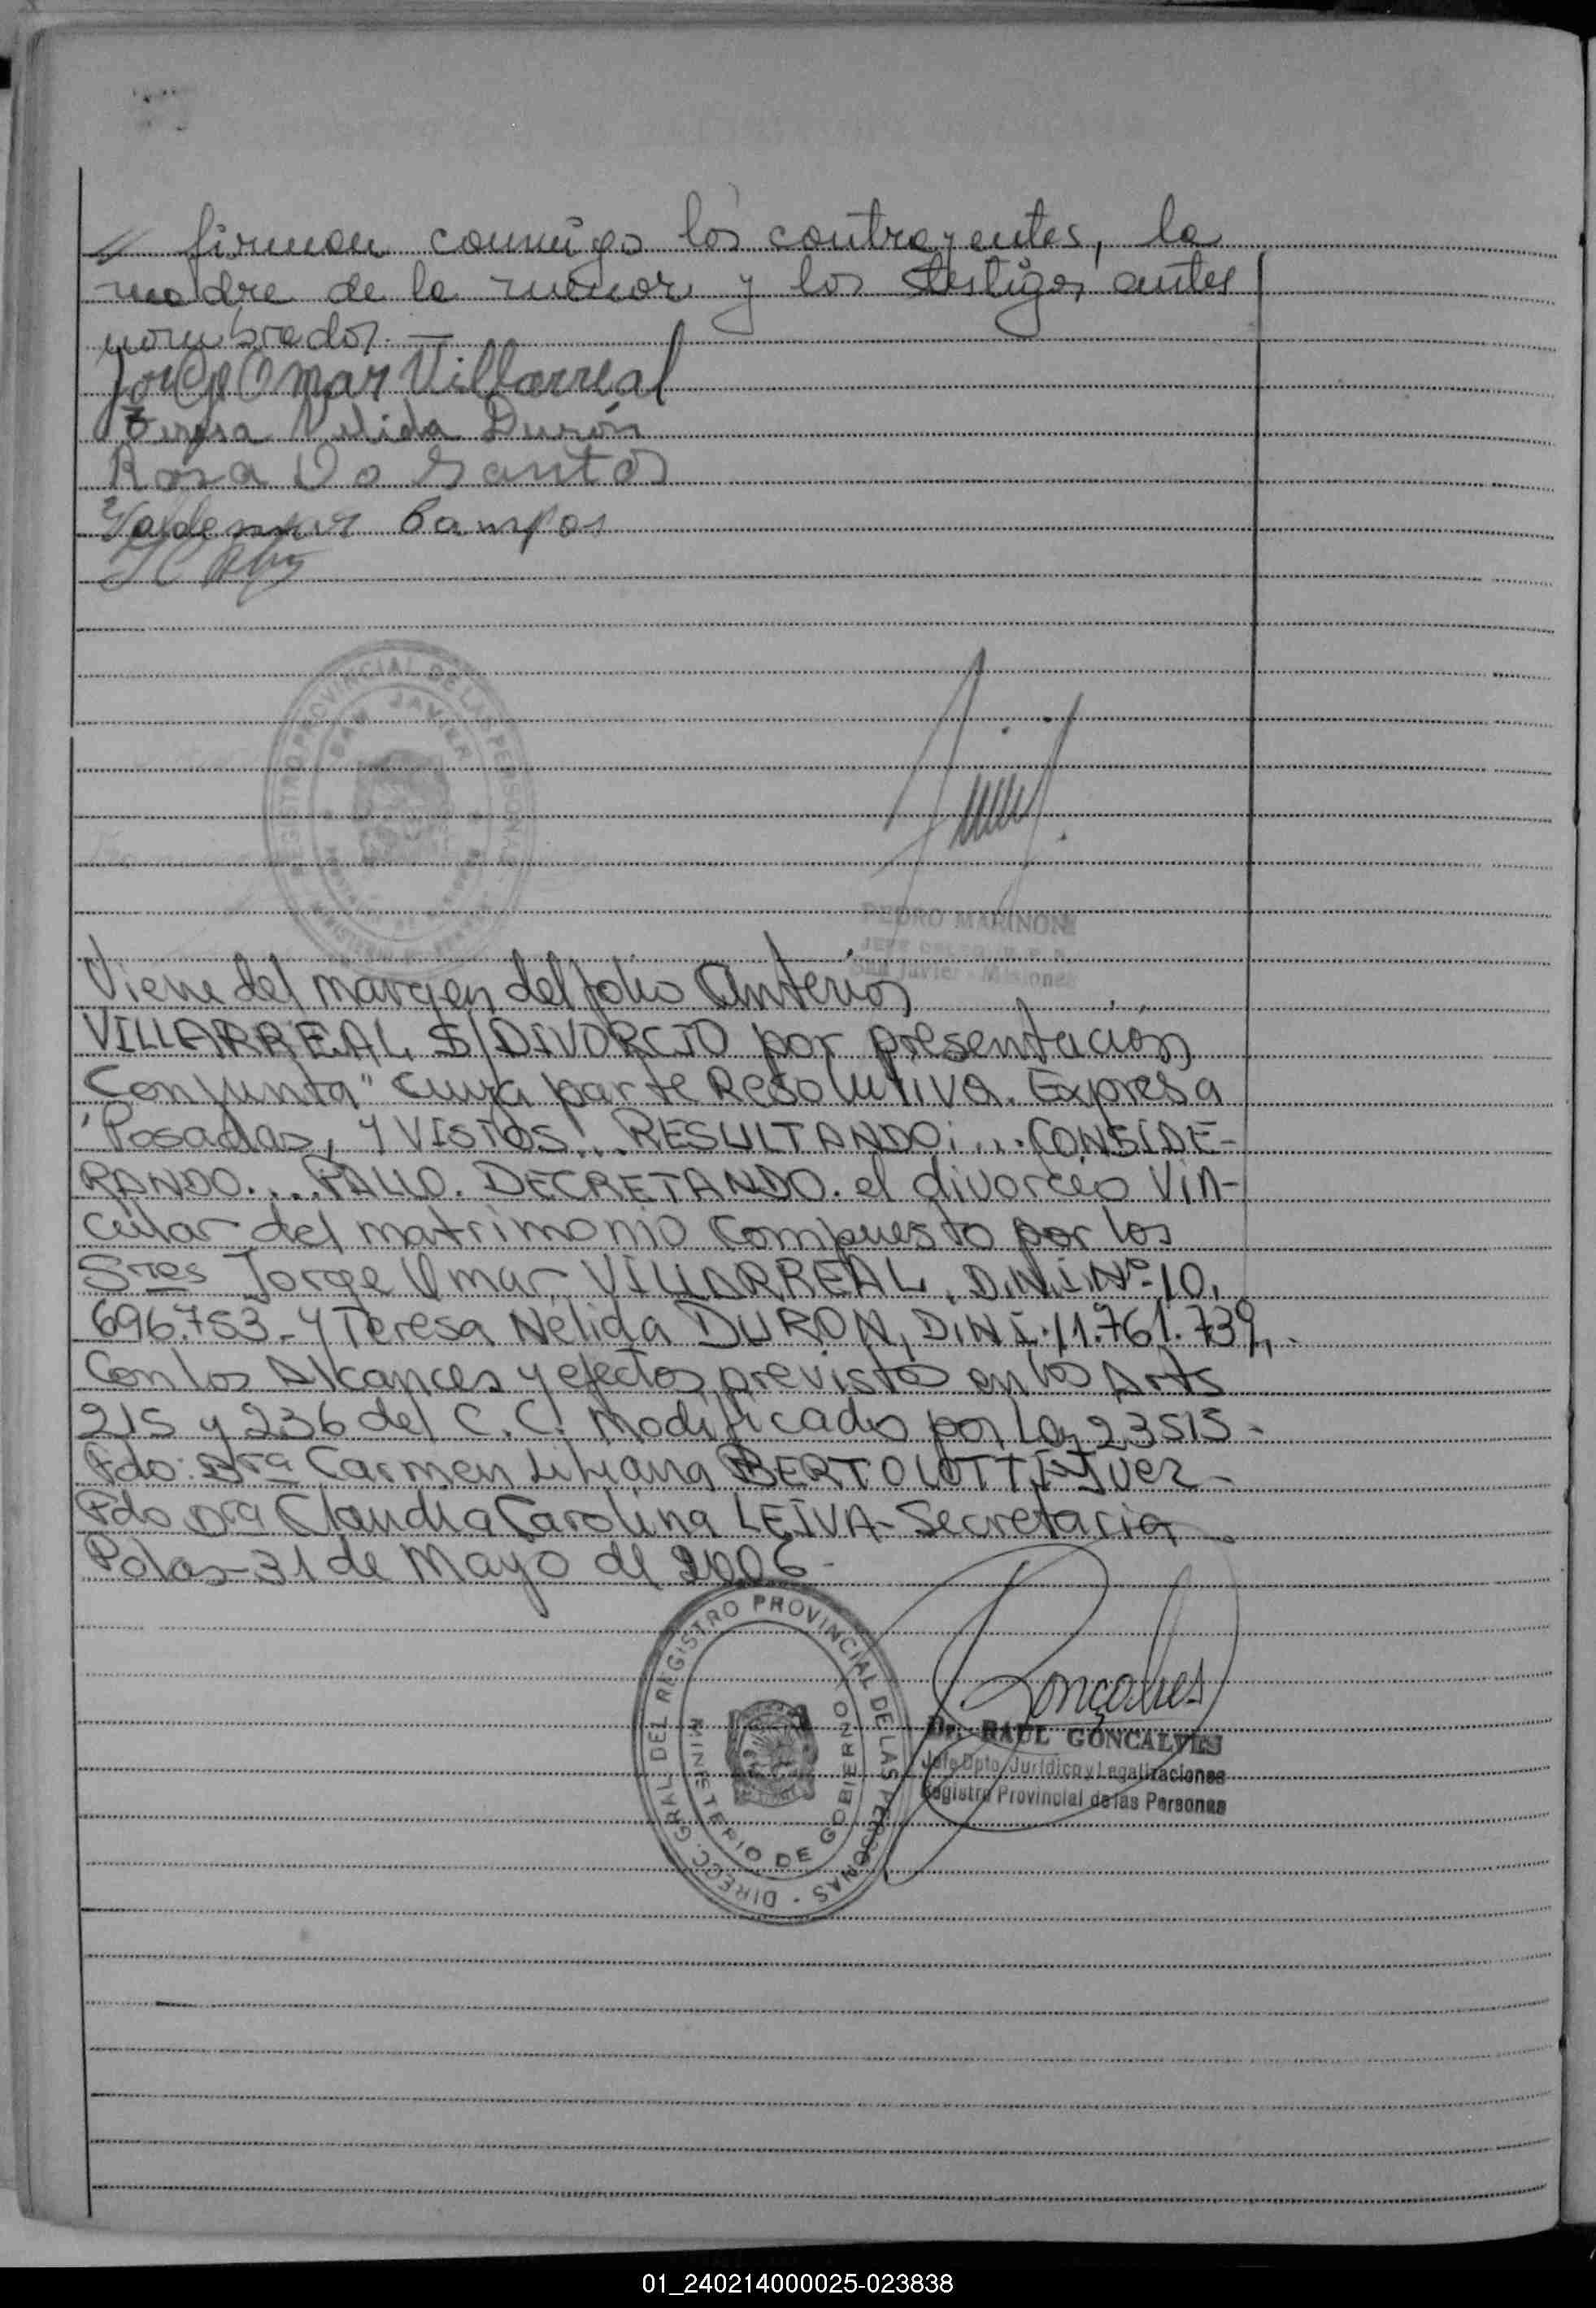 // firman conmigo los contrayentes, la
madre de la menor y los testigos antes
nombrados.—
Jorge Omar Villarreal
Teresa Nelida Durón
Rosa Do Santos
Valdemar Campos
REGISTRO PROVINCIAL DE LAS PERSONAS
SAN JAVIER
PEDRO MARINONI
San Javier - Misiones
Viene del margen del folio anterior
VILLARREAL S/DIVORCIO por presentación
Conjunta" cuya parte Resolutiva. Expresa
"Posadas, Y VISTOS!... RESULTANDO:... CONSIDE-
RANDO.... FALLO. DECRETANDO. el divorcio Vin-
cular del matrimonio compuesto por los
Sres Jorge Omar VILLARREAL, D.N.I.Nº-10.
696.753_ y Teresa Nélida DURON, D.N.I. 11.761.739,-
Con los Alcances y efectos previstos en los Arts
215 y 236 del C.C. Modificados por Ley 23515-
Fdo: Dra Carmen Liliana BERTOLOTTI-Juez-
Fdo Dra Claudia Carolina LEIVA-Secretaria-
Pdas-31 de Mayo de 2006-
DIRECC. GRAL. DEL REGISTRO PROVINCIAL DE LAS PERSONAS
MINISTERIO DE GOBIERNO
Goncalves
Dr. RAUL GONCALVES
Jefe Dpto. Jurídico y Legalizaciones
Registro Provincial de las Personas
01_240214000025-023838